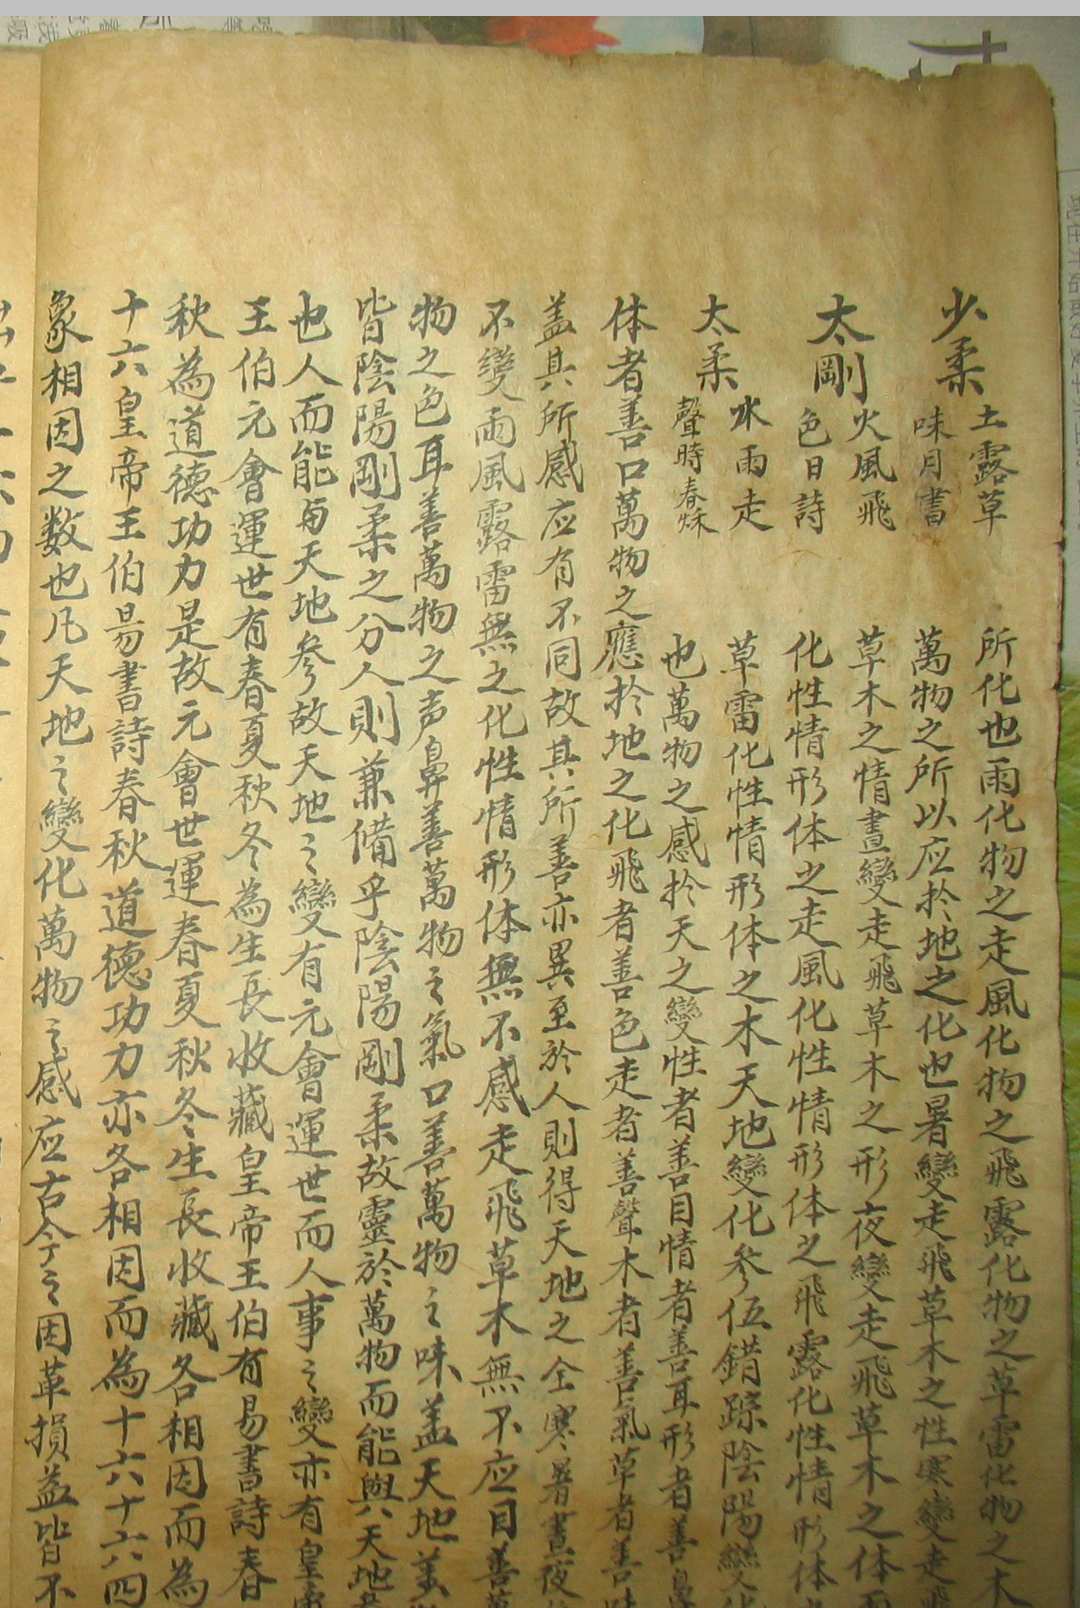 少柔
土露草
味月書
所化也雨化物之走風化物之飛露化物之草雷化物之木
萬物之所以应於地之化也暑變走飛草木之性寒變走飛
太剛
火風飛
色日詩
草木之情晝變走飛草木之形夜變走飛草木之体雨
化性情形体之走風化性情形体之飛露化性情形体之
太柔
水雨走
聲時春秌
草雷化性情形体之木天地變化参伍錯踪陰陽變化
也萬物之感於天之變性者善目情者善耳形者善鼻
体者善口萬物之應於地之化飛者善色走者善聲木者善氣草者善味
盖其所感应有不同故其所善亦異至於人則得天地之全寒暑晝夜
不變雨風露雷無之化性情形体無不感走飛草木無不应目善萬
物之色耳善萬物之声鼻善萬物之氣口善萬物之味盖天地萬
皆陰陽剛柔之分人則兼備乎陰陽剛柔故靈於萬物而能與天地
也人而能与天地参故天地之變有元會運世而人事之變亦有皇帝
王伯元會運世有春夏秋冬為生長收藏皇帝王伯有易書詩春
秋為道德功力是故元會世運春夏秋冬生長收藏各相因而為
十六皇帝王伯昜書詩春秋道德功力亦各相因而為十六十六四
象相因之数也凡天地之變化萬物之感应古今之因革損益皆不